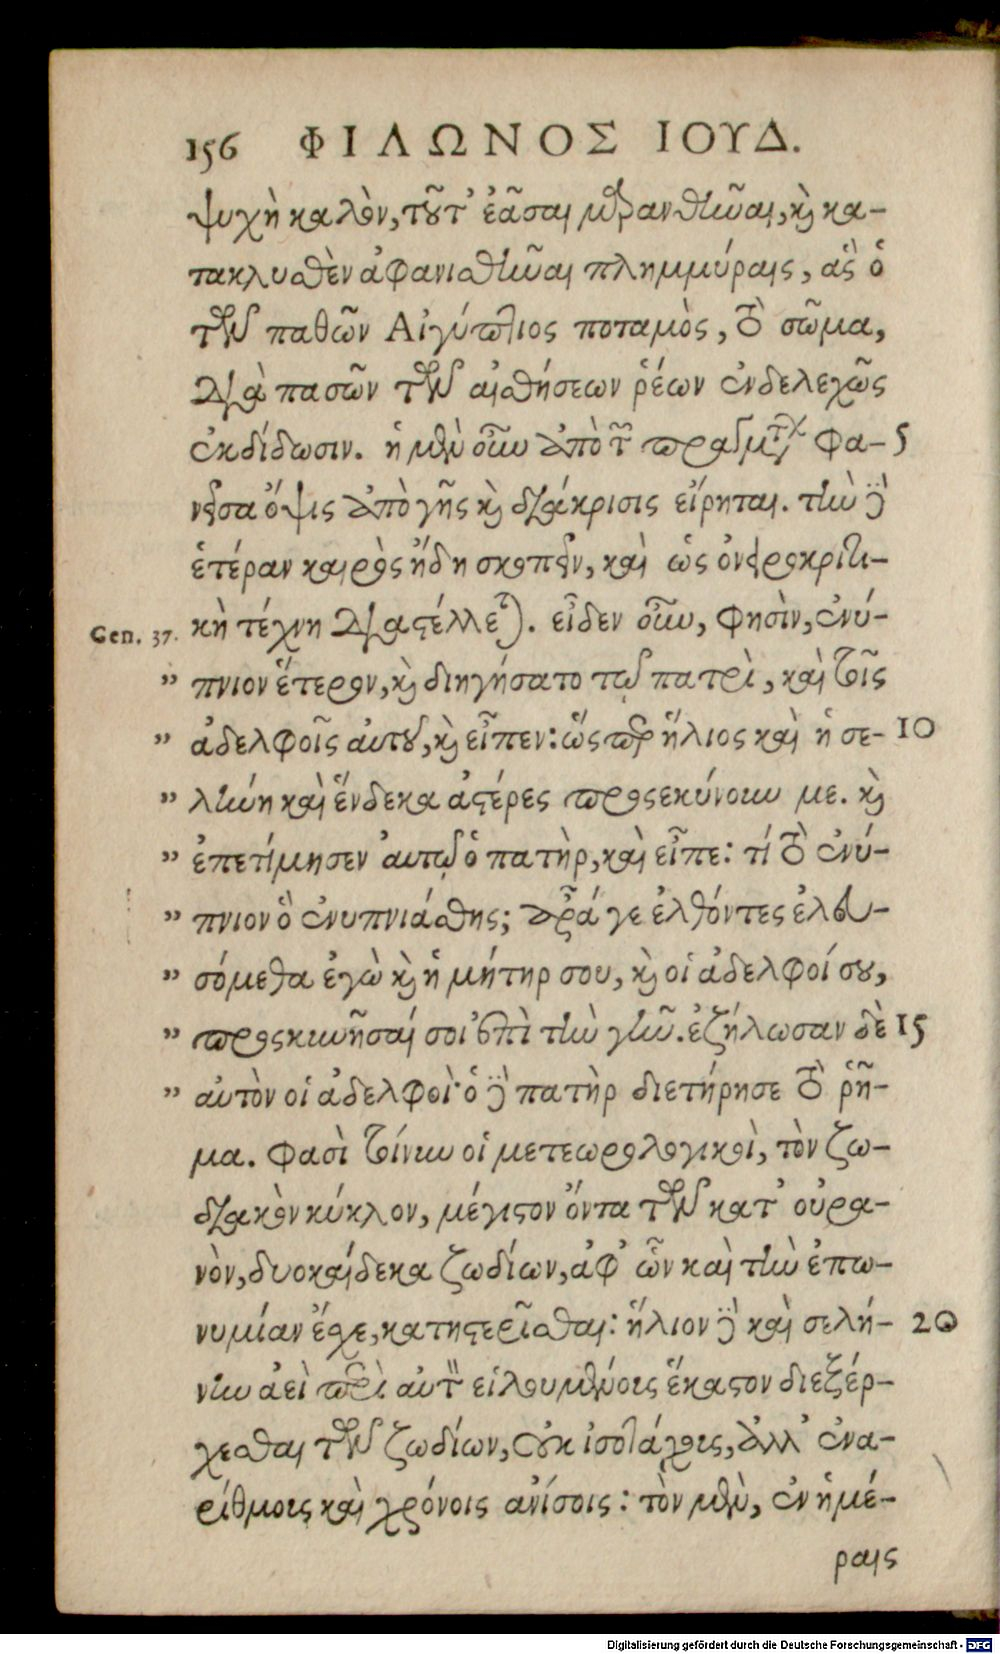 156 ΦΙΛΩΝΟΣ ΙΟΥΔ.
ψυχὴ καλὸν, τοῦτ' ἐᾶσαι μαρανθῆναι, καὶ κα-
τακλυσθὲν ἀφανισθῆναι πλημμύραις, ἃς ὁ
τῶν παθῶν Αἰγύπτιος ποταμὸς, τὸ σῶμα,
διὰ πασῶν τῶν αἰσθήσεων ῥέων ἐνδελεχῶς
ἐκδίδωσιν. ἡ μὲν οὖν ἀπὸ τῶν πραγμάτων φα- 5
νεῖσα ὄψις ἀπὸ γῆς καὶ διάκρισις εἴρηται. τὴν δὲ
ἑτέραν καιρὸς ἤδη σκοπεῖν, καὶ ὡς ὀνειροκριτι-
Gen. 37. κὴ τέχνη διαστέλλεται. εἶδεν οὖν, φησὶν, ἐνύ-
" πνιον ἕτερον, καὶ διηγήσατο τῷ πατρὶ, καὶ τοῖς
" ἀδελφοῖς αὐτοῦ, καὶ εἶπεν: ὥσπερ ἥλιος καὶ ἡ σε- 10
" λήνη καὶ ἕνδεκα ἀστέρες προσεκύνουν με. καὶ
" ἐπετίμησεν αὐτῷ ὁ πατὴρ, καὶ εἶπε: τί τὸ ἐνύ-
" πνιον ὃ ἐνυπνιάσθης; ἆρά γε ἐλθόντες ἐλευ-
" σόμεθα ἐγὼ καὶ ἡ μήτηρ σου, καὶ οἱ ἀδελφοί σου,
" προσκυνῆσαί σοι ἐπὶ τὴν γῆν. ἐζήλωσαν δὲ 15
" αὐτὸν οἱ ἀδελφοὶ· ὁ δὲ πατὴρ διετήρησε τὸ ῥῆ-
μα. φασὶ τοίνυν οἱ μετεωρολογικοὶ, τὸν ζω-
διακὸν κύκλον, μέγιστον ὄντα τῶν κατ' οὐρα-
νὸν, δυοκαίδεκα ζωδίων, ἀφ' ὧν καὶ τὴν ἐπω-
νυμίαν ἔσχε, κατηστερίσθαι: ἥλιον δὲ καὶ σελή- 20
νην ἀεὶ περὶ αὐτὸν εἱλουμένους ἕκαστον διεξέρ-
χεσθαι τῶν ζωδίων, οὐκ ἰσοταχοις, ἀλλ' ἐνα-
ρίθμοις καὶ χρόνοις ἀνίσοις: τὸν μὲν, ἐν ἡμέ-
ραις
Digitalisierung gefördert durch die Deutsche Forschungsgemeinschaft - DFG